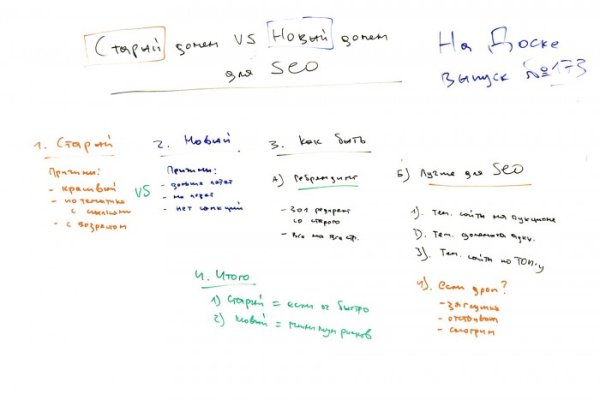 Старый домен VS Новый домен
для SEO
На Доске
выпуск №173
1. Старый
Причины:
- красивый
- по тематике
с ссылками
- с возрастом
VS
2. Новый
Причины:
- дольше
- нет санкций
3. Как быть
А) Ребрендинг
- 301 редирект
со старого
- Все на все стр.
Б) Лучше для SEO
1). Тем. сайты на аукционе
2). Тем. домены аукц.
3). Тем. сайты по ТОП-у
4). если дроп?
- заглушка
- отстоять
- смотрим
4. Итого
1) Старый = если оч быстро
2) Новый = минимум рисков